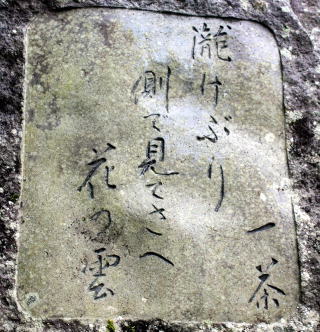 瀧けぶり
側で見てさへ
花の雲
一茶